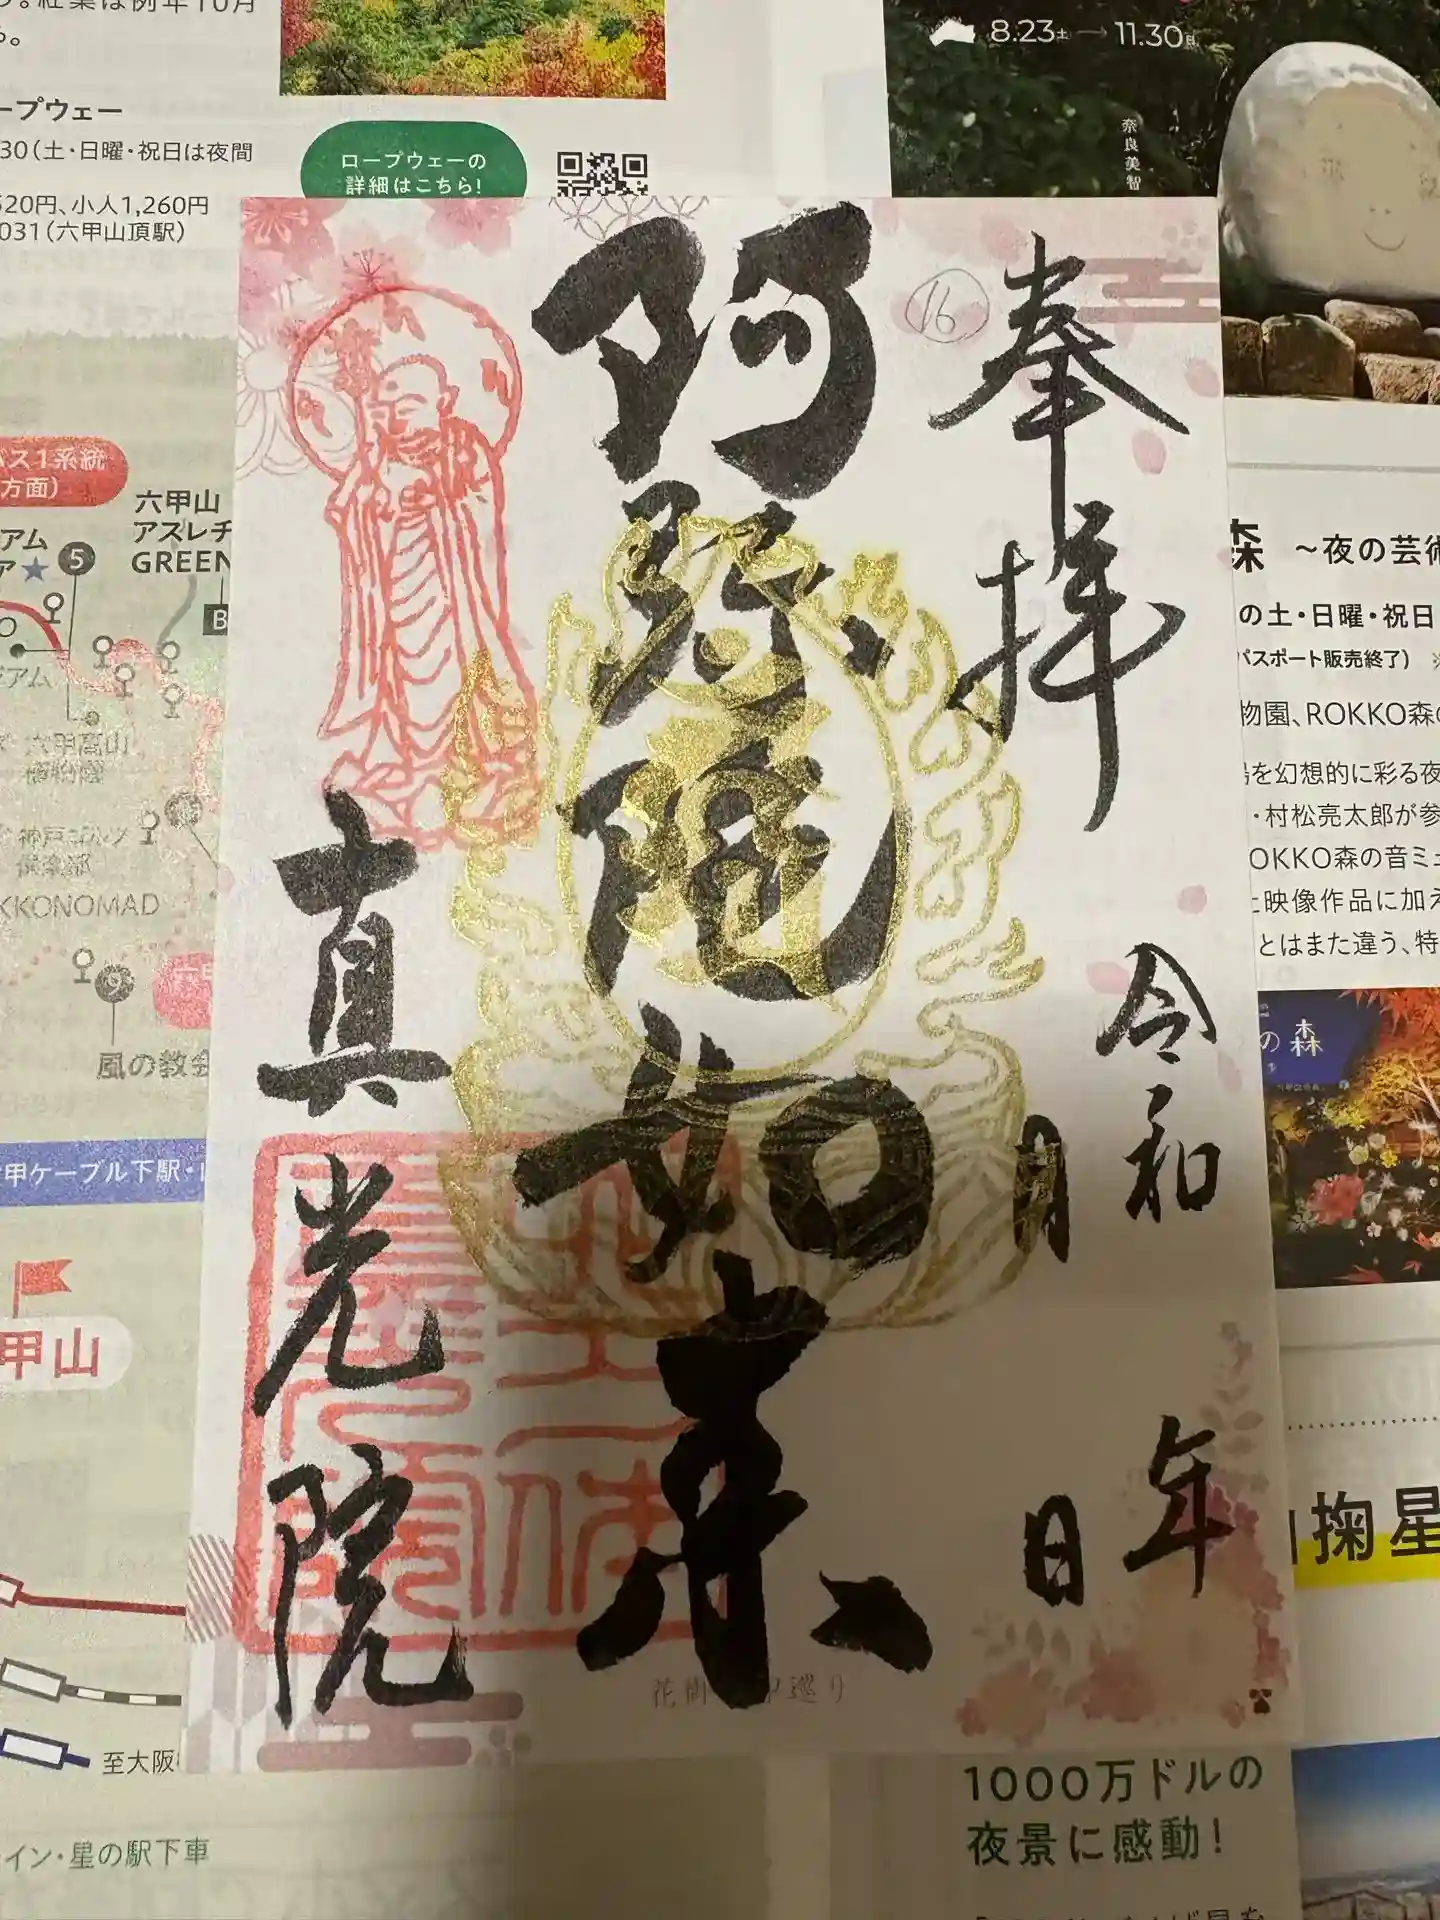 。紅葉は例年10月
る。
ープウェー
30（土・日曜・祝日は夜間
520円、小人1,260円
031（六甲山頂駅）
ロープウェーの
詳細はこちら!
8.23土→11.30日
奈良美智
奉拝
16
阿弥陀如来
真光院
令和
年
月
日
バス1系統
方面）
六甲山
アスレチ
GREEN
アム
ア★
5
B
デアム
六甲高山
植物園
神戸ゴルフ
倶楽部
KKONOMAD
9
風の教会
甲ケーブル下駅・
甲山
至大阪
イン・星の駅下車
森 ～夜の芸術
の土・日曜・祝日
パスポート販売終了）
物園、ROKKO森の
を幻想的に彩る夜
・村松亮太郎が参
OKKO森の音ミュ
映像作品に加え
とはまた違う、特
の森
掬星
巡り
1000万ドルの
夜景に感動!